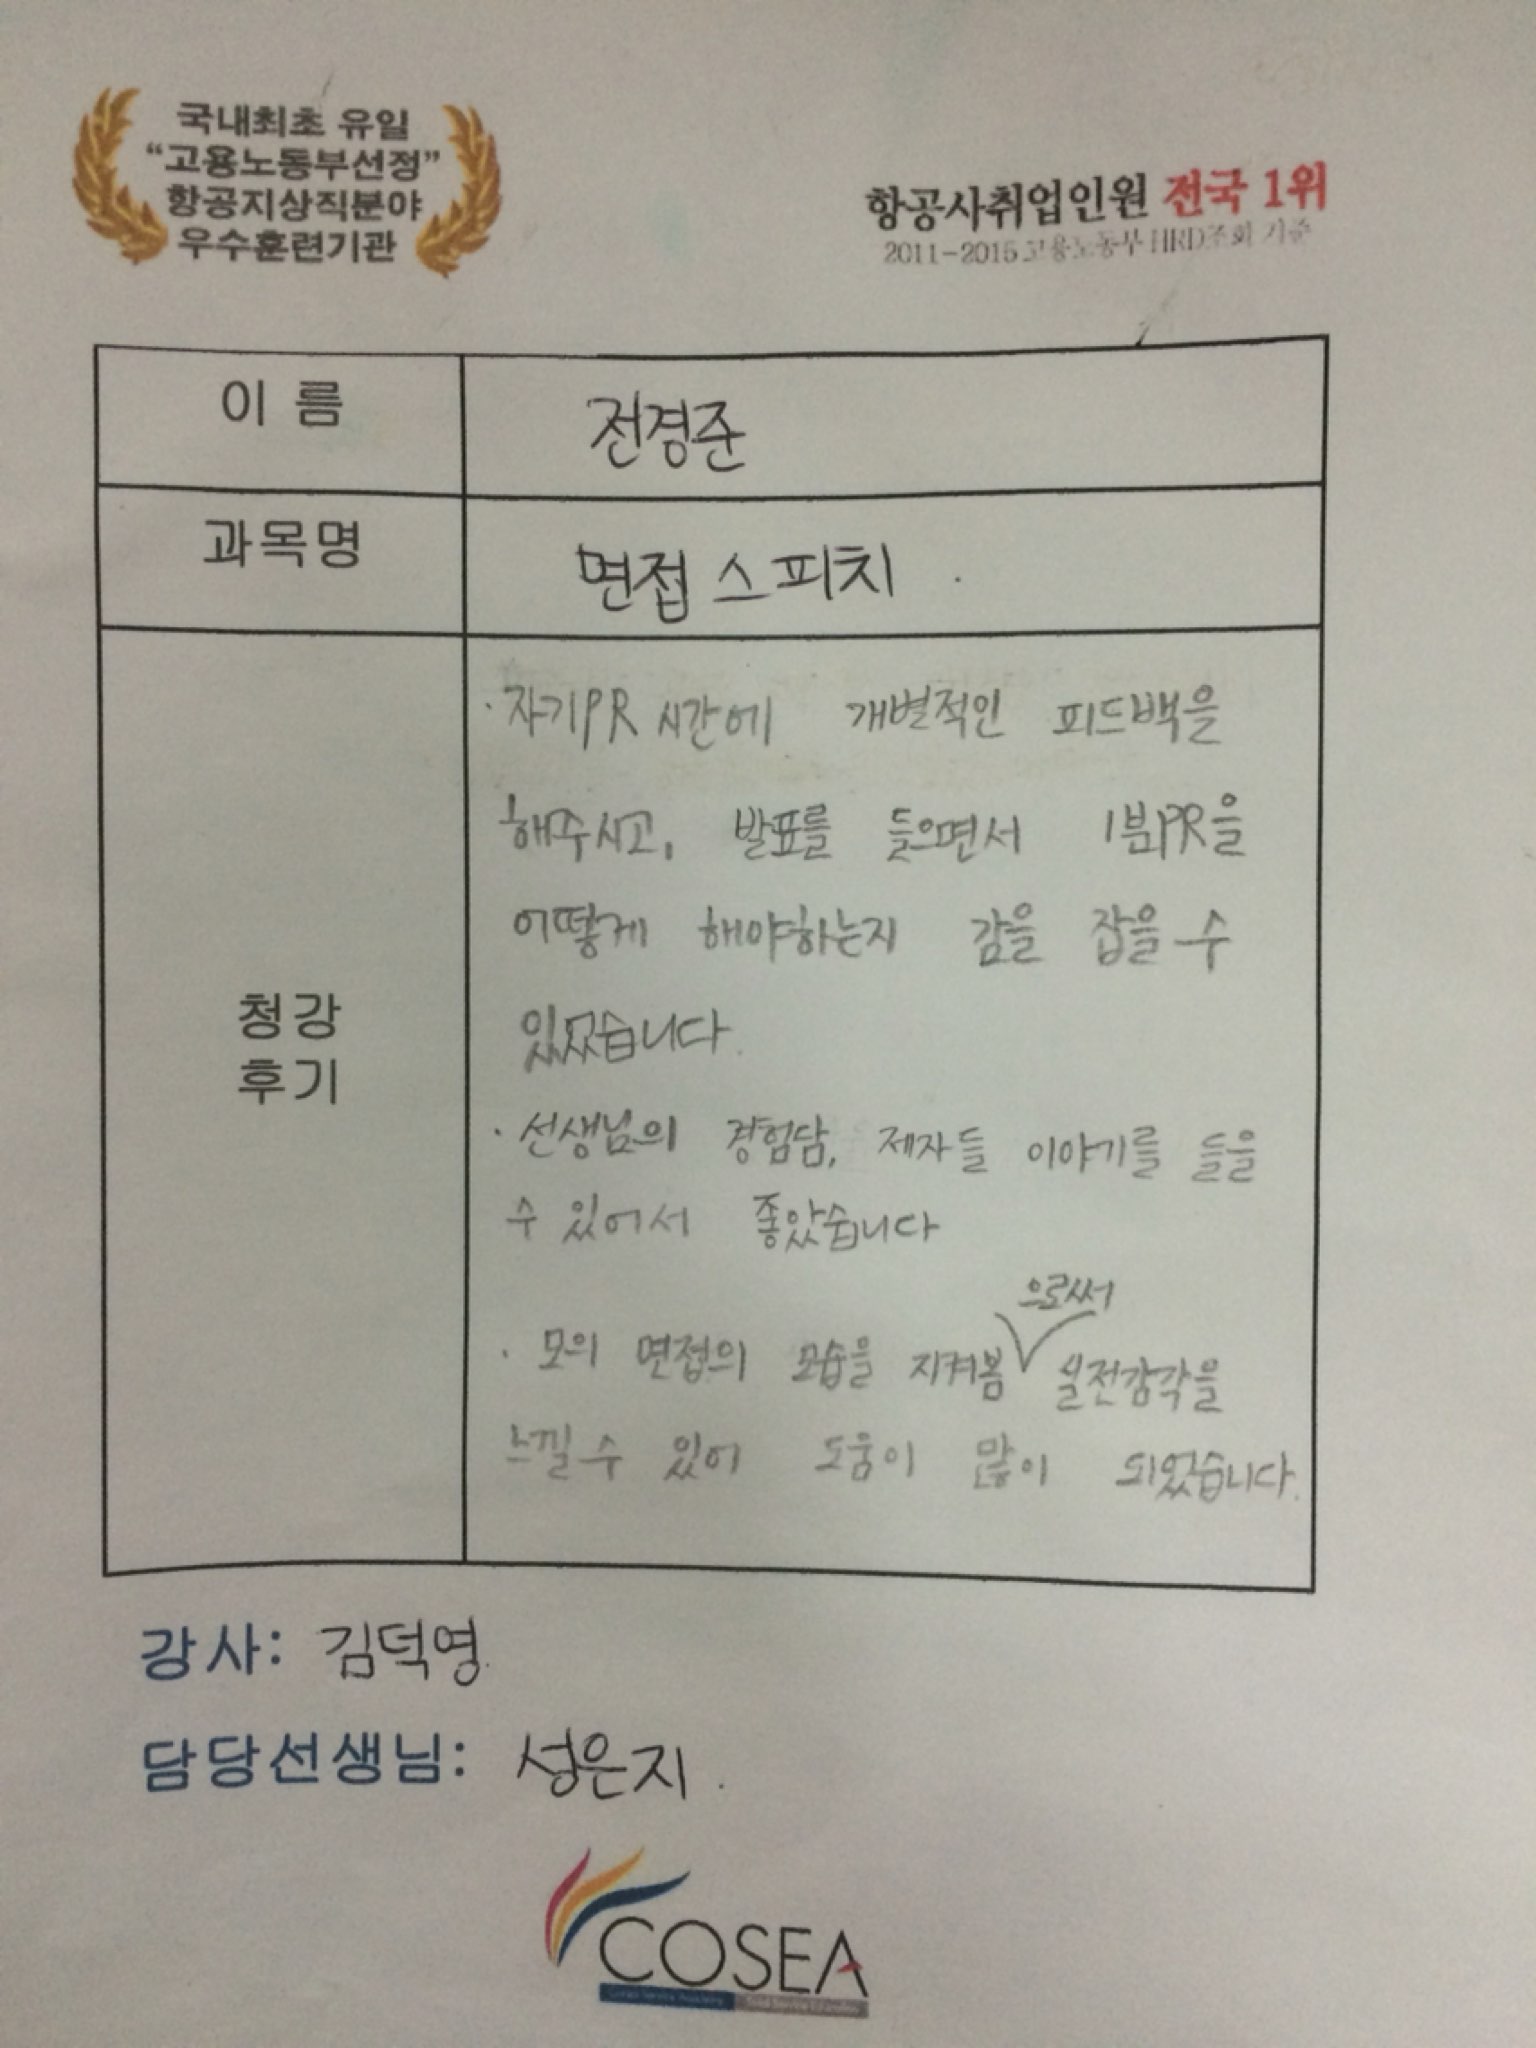 국내최초 유일
“고용노동부선정”
항공지상직분야
우수훈련기관
항공사취업인원 전국 1위
2011-2015 고용노동부 HRD조회 기준
이 름
전경준
과목명
면접 스피치
청강
후기
· 자기PR 시간에 개별적인 피드백을
해주시고, 발표를 들으면서 1분PR을
어떻게 해야하는지 감을 잡을 수
있었습니다.
· 선생님의 경험담, 제자들 이야기를 들을
수 있어서 좋았습니다
으로써
· 모의 면접의 모습을 지켜봄 실전감각을
느낄 수 있어 도움이 많이 되었습니다.
강사: 김덕영
담당선생님: 성은지
COSEA